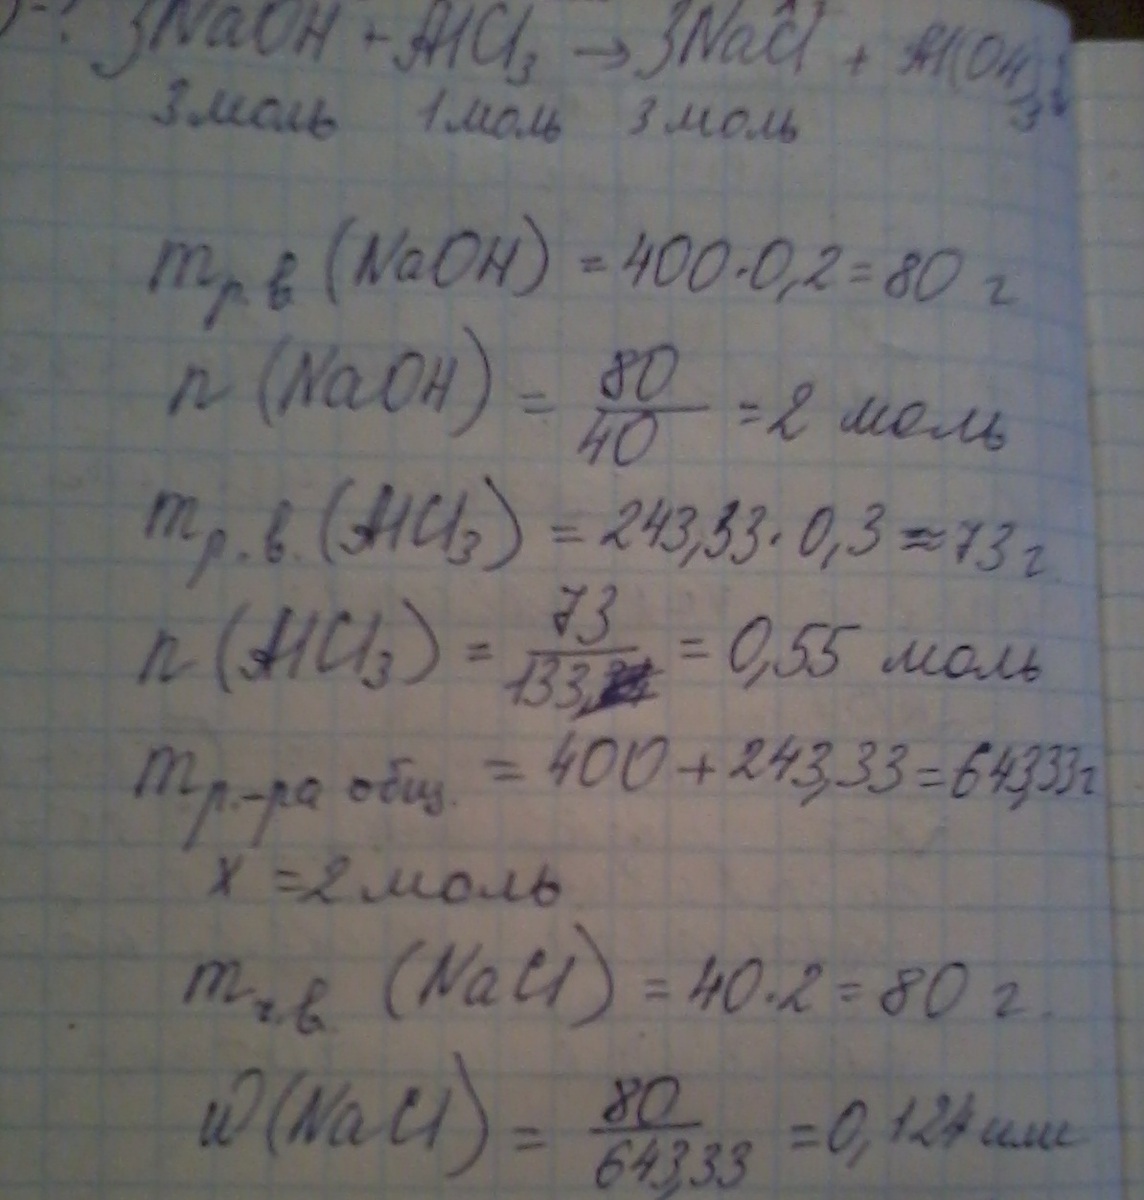 3NaOH + AlCl₃ → 3NaCl + Al(OH)₃↓
3 моль 1 моль 3 моль
m р.в. (NaOH) = 400·0,2 = 80 г
n (NaOH) = 80/40 = 2 моль
m р.в. (AlCl₃) = 243,33·0,3 ≈ 73 г
n (AlCl₃) = 73/133, = 0,55 моль
m р.-ра общ. = 400 + 243,33 = 643,33 г
x = 2 моль
m ч.в. (NaCl) = 40·2 = 80 г.
ω (NaCl) = 80/643,33 = 0,124 или